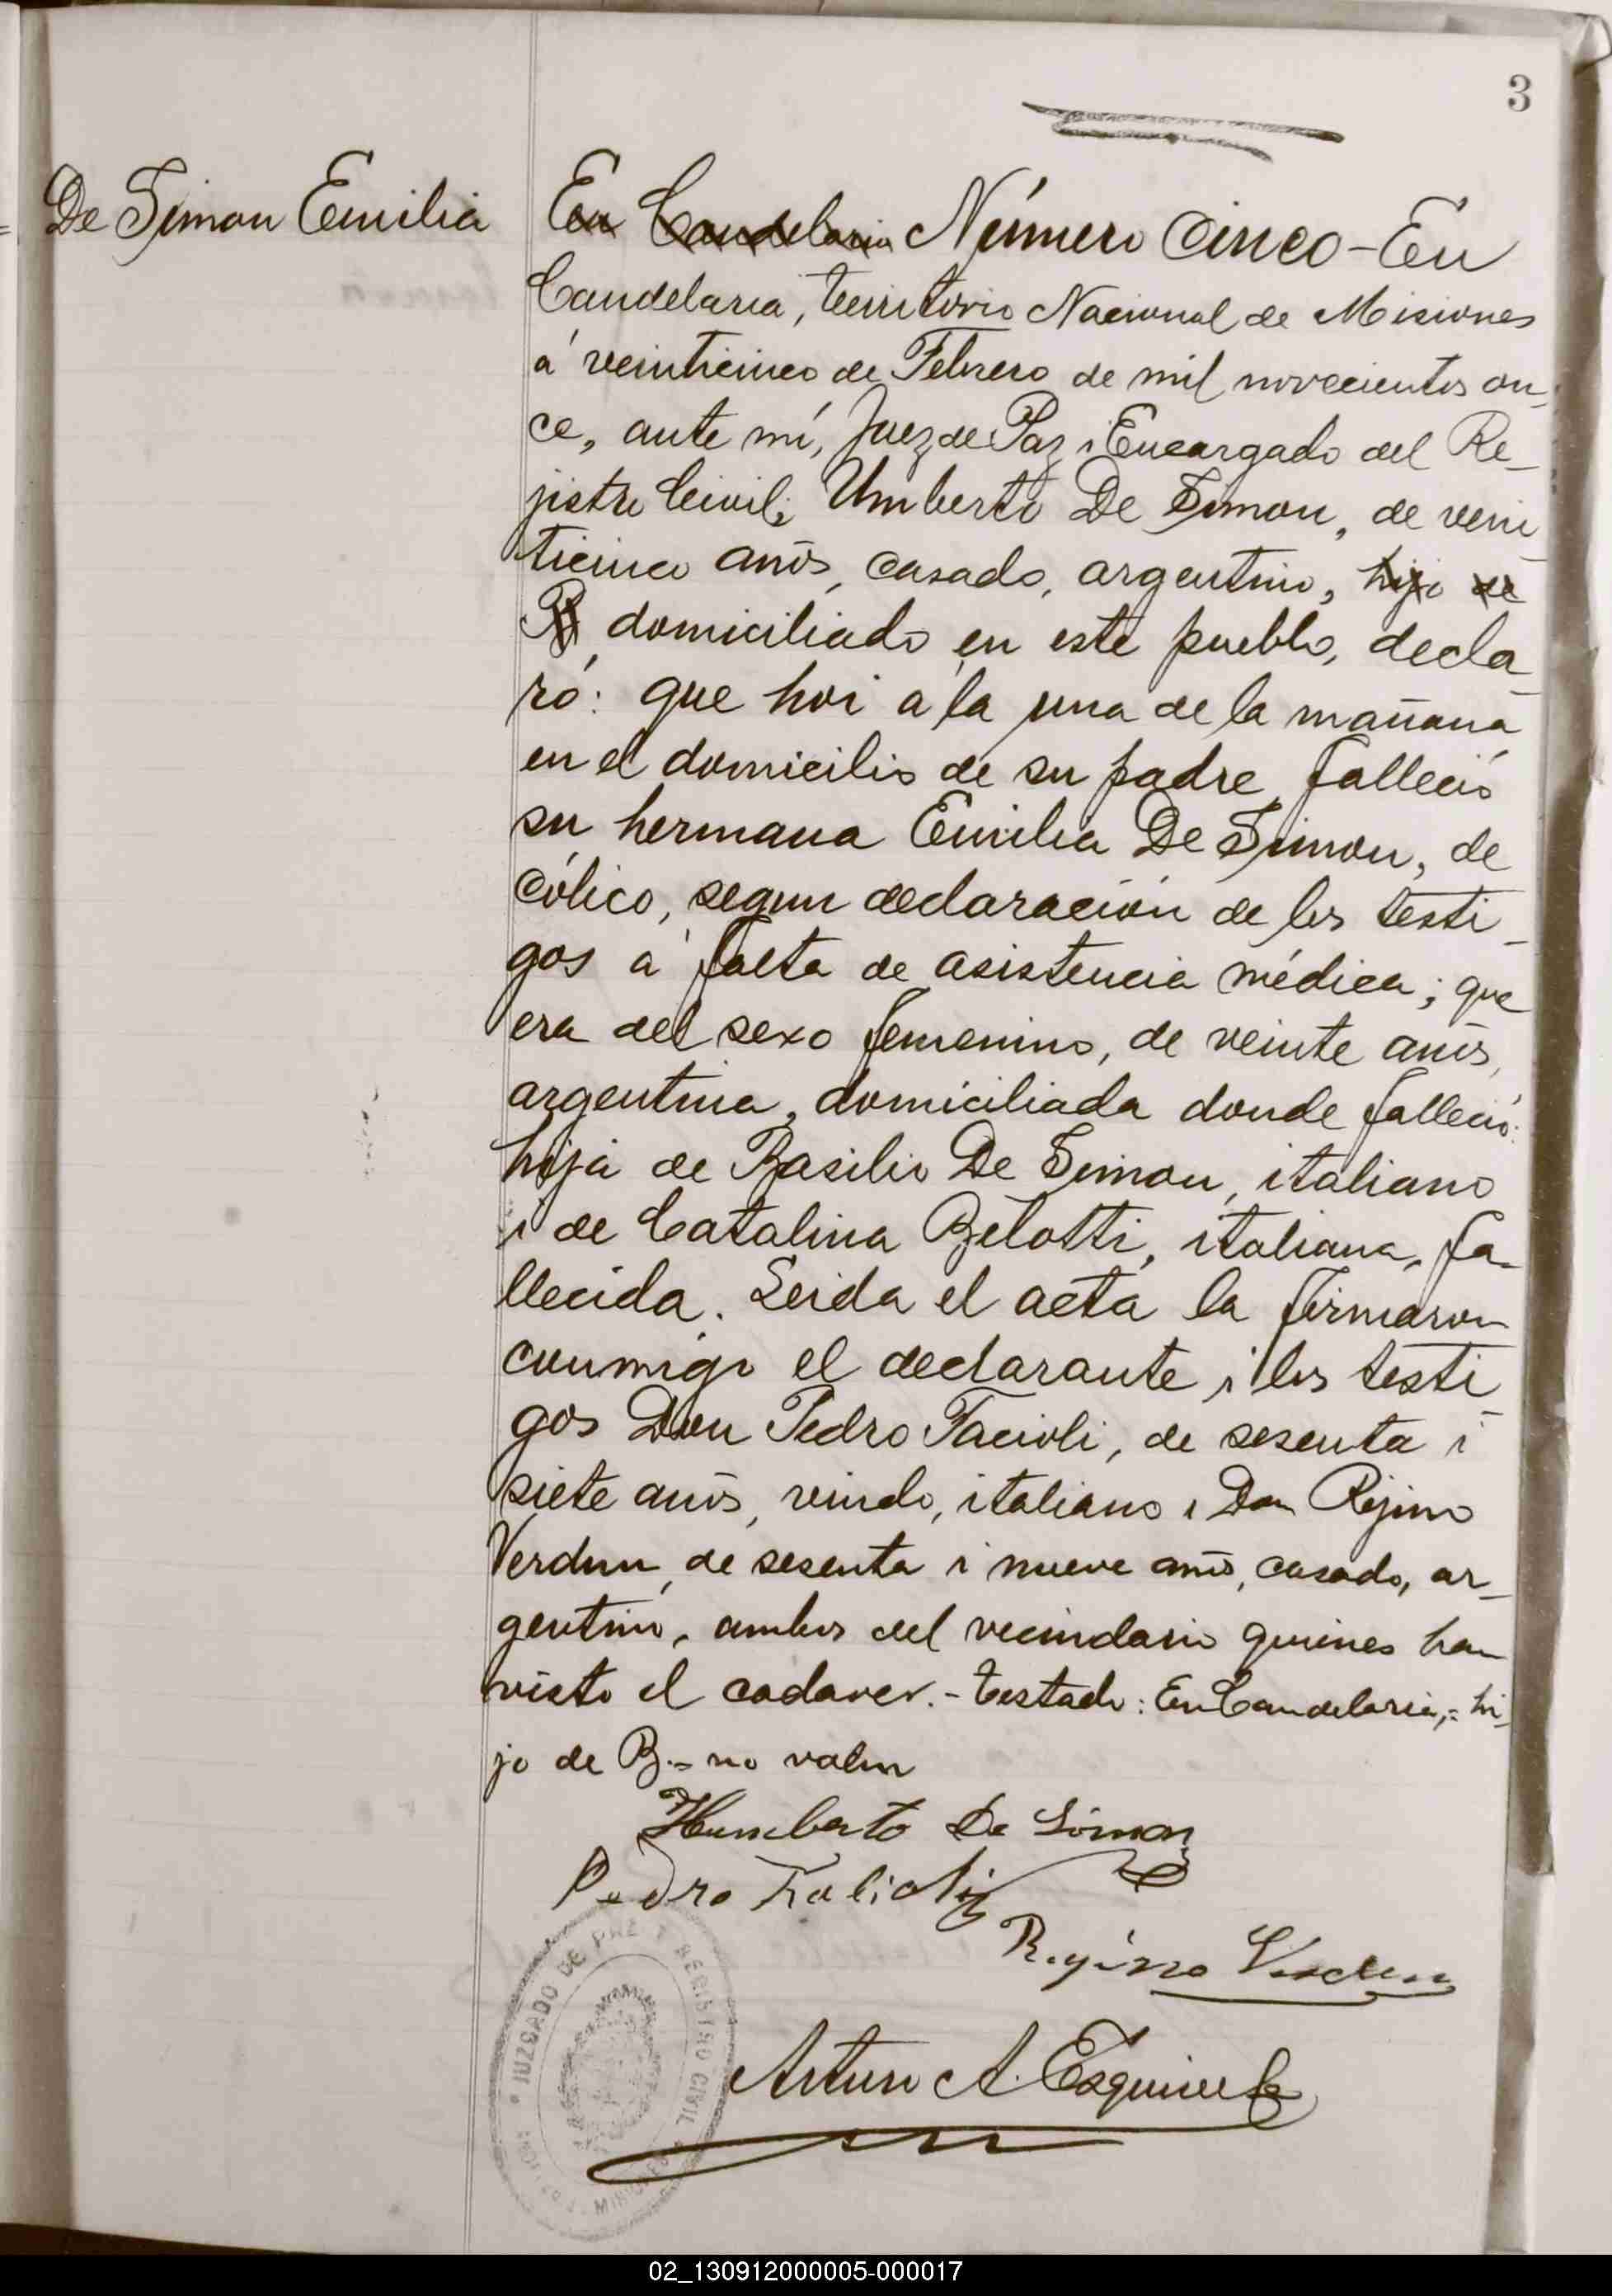 3
De Simon Emilia
En Candelaria Número Cinco - En
Candelaria, territorio Nacional de Misiones
á veinticinco de Febrero de mil novecientos on_
ce, ante mí, Juez de Paz i Encargado del Re_
jistro Civil; Umberto De Simon, de vein_
ticinco años, casado, argentino, hijo de
B domiciliado en este pueblo, decla_
ró: que hoi a la una de la mañana
en el domicilio de su padre falleció
su hermana Emilia De Simon, de
cólico, segun declaración de los testi_
gos á falta de asistencia médica; que
era del sexo femenino, de veinte años,
argentina, domiciliada donde falleció:
hija de Basilio De Simon, italiano
i de Catalina Belotti, italiana, fa_
llecida. Leida el acta la firmaron
conmigo el declarante i los testi_
gos Don Pedro Facioli, de sesenta i
siete años, viudo, italiano i Don Rejino
Verdun, de sesenta i nueve años, casado, ar_
gentino, ambos del vecindario quienes han
visto el cadaver. - Testado: En Candelaria, = hi_
jo de B. - no valen
Humberto De Simon
Pedro
Regino Verdun
Arturo A. Esquivel
JUZGADO DE PAZ Y REGISTRO CIVIL
MISIONES
02_130912000005-000017